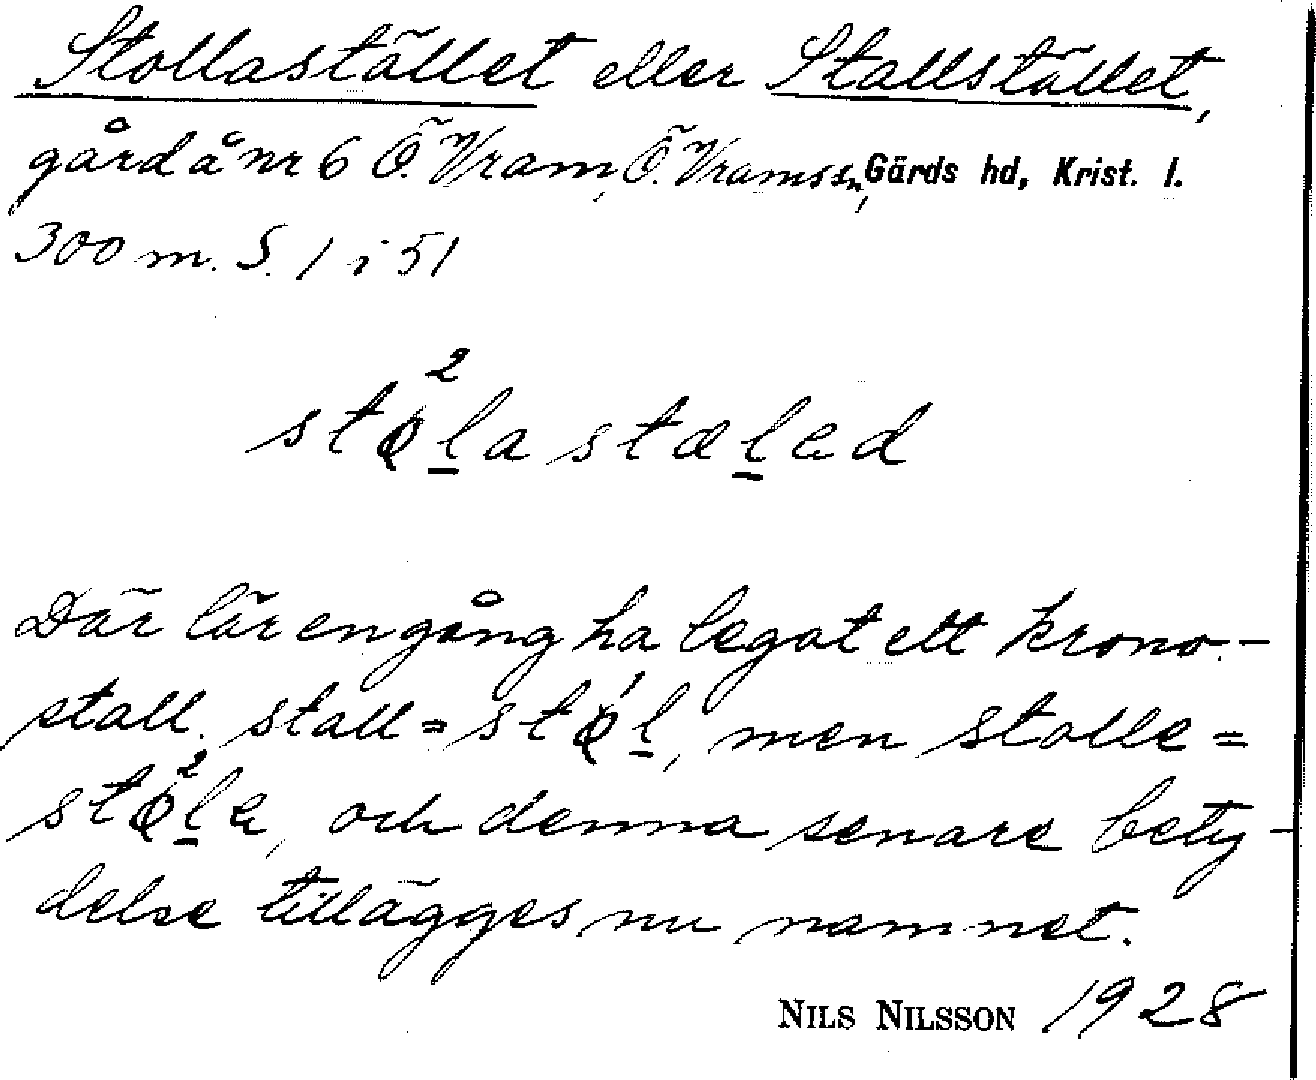 Stollastället eller Stallstället,
gård å nr 6 Ö. Vram, Ö. Vramssn, Gärds hd, Krist. l.
300 m. S. 1 i 51
stǫ²l̲astæl̲ed
Där lär en gång ha legat ett krono-
stall. stall = stǫ́l̲, men stolle =
stǫ²l̲e, och denna senare bety-
delse tillägges nu namnet.
NILS NILSSON 1928